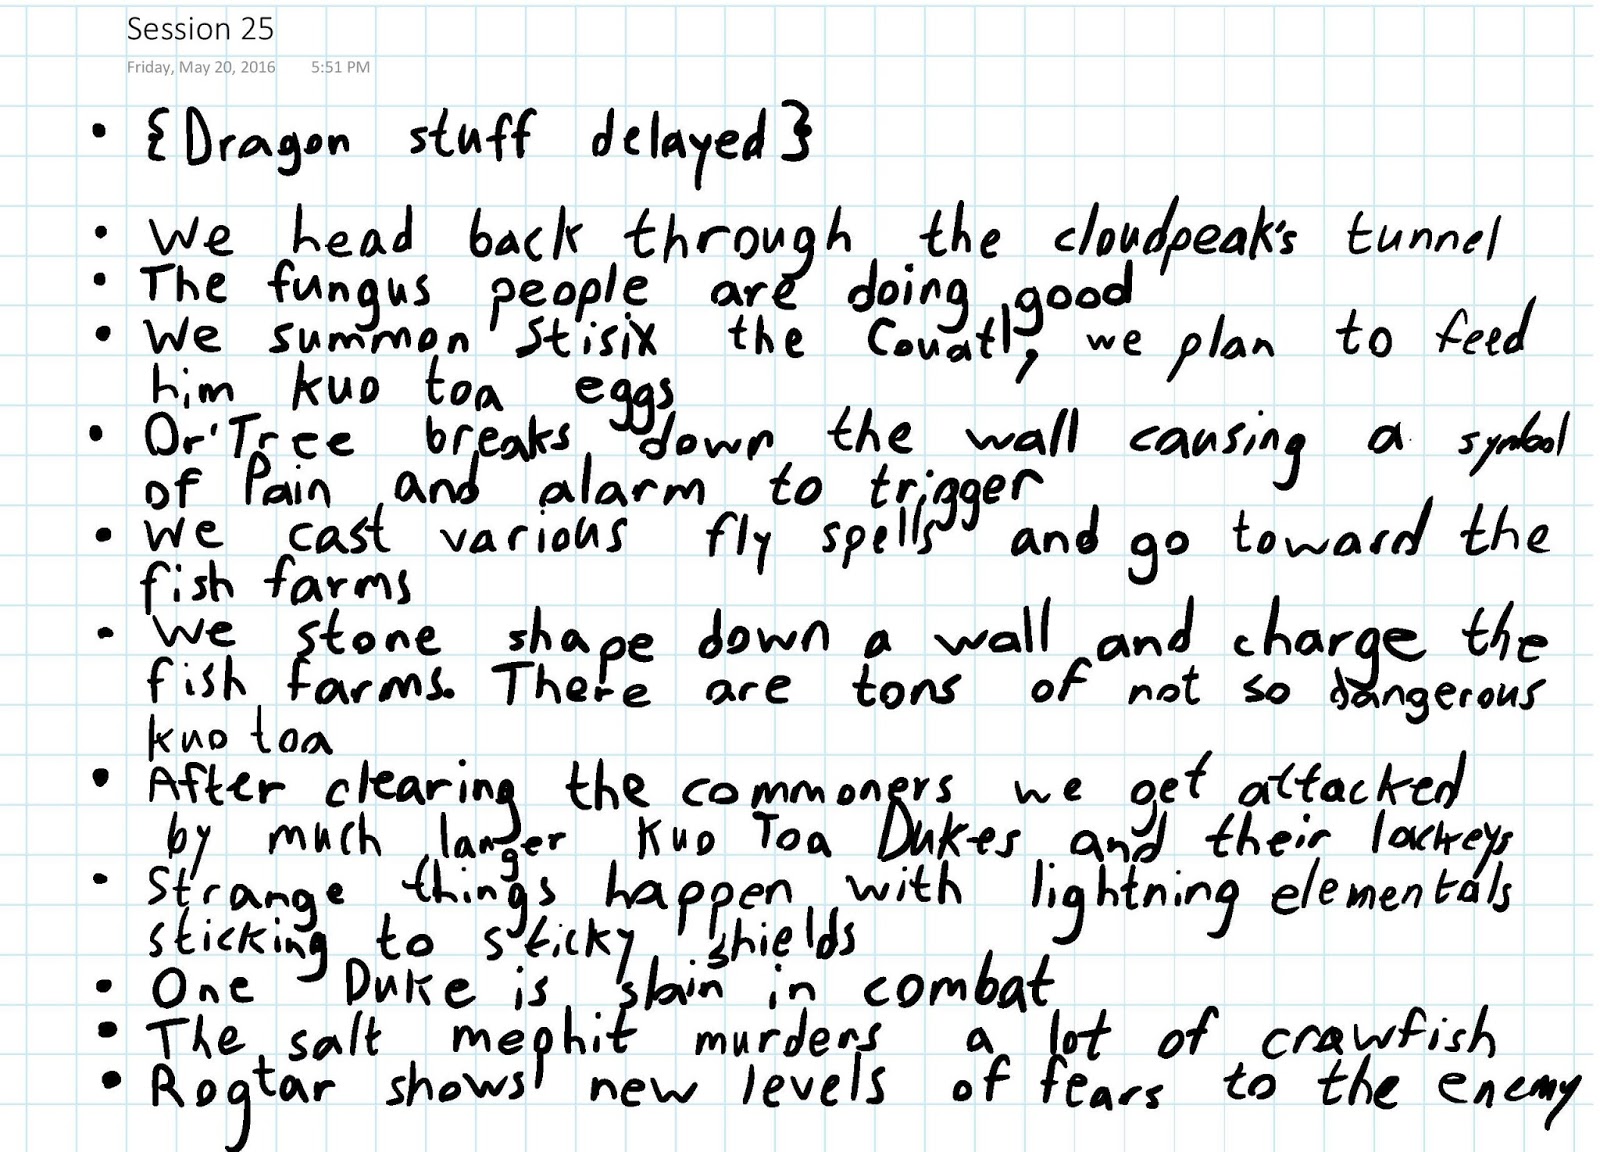 Session 25
Friday, May 20, 2016 5:51 PM
• {Dragon stuff delayed}
• We head back through the cloudpeak's tunnel
• The fungus people are doing good
• We summon Stisix the Couatl, we plan to feed
him kuo toa eggs
• Or'Tree breaks down the wall causing a symbol
of Pain and alarm to trigger
• We cast various fly spells and go toward the
fish farms
• We stone shape down a wall and charge the
fish farms. There are tons of not so dangerous
kuo toa
• After clearing the commoners we get attacked
by much larger Kuo Toa Dukes and their lackeys
• Strange things happen with lightning elementals
sticking to sticky shields
• One Duke is slain in combat
• The salt mephit murders a lot of crawfish
• Rogtar shows new levels of fears to the enemy